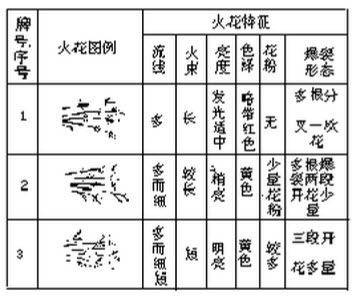 牌号.序号
火花图例
火花特征
流线
火束
亮度
色泽
花粉
爆裂
形态
1
多
长
发光适中
略带红色
无
多根分
叉一次
花
2
多而细
较长
稍亮
黄色
少量花粉
多根爆
裂两段
开花少
量
3
多而细短
短
明亮
黄色
较多
三段开
花多量